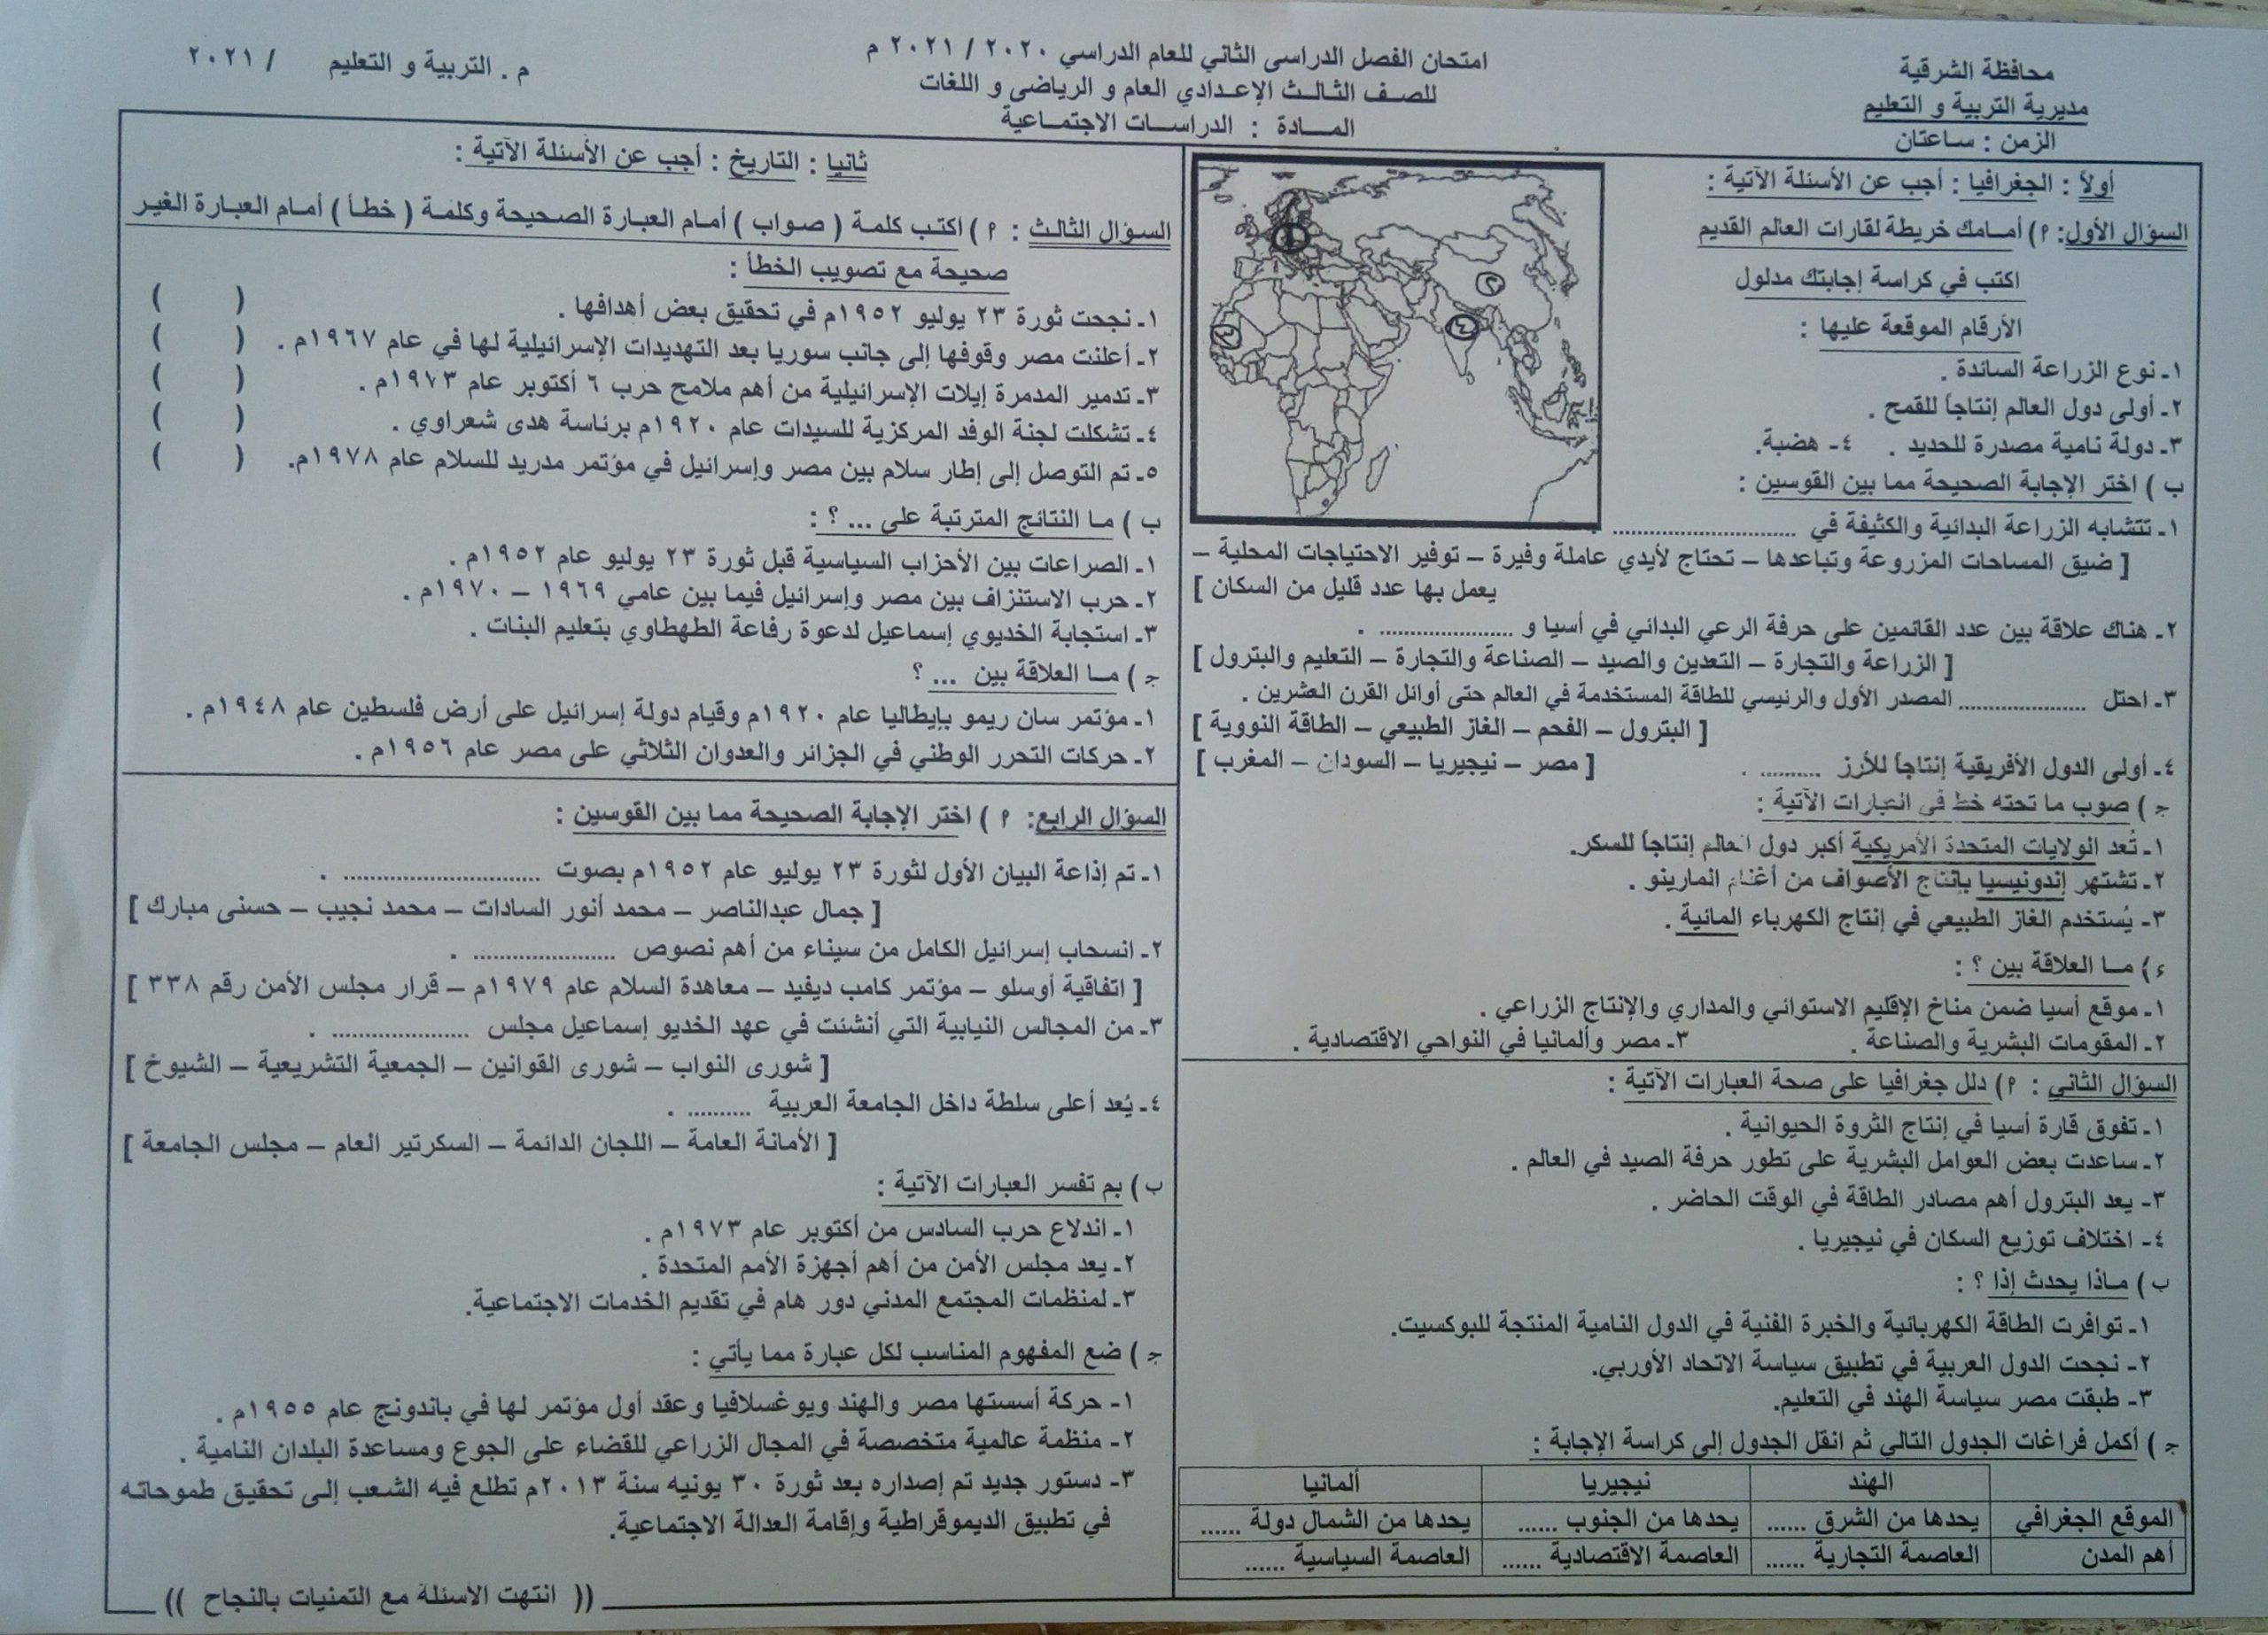 محافظة الشرقية
مديرية التربية و التعليم
الزمن : ساعتان
امتحان الفصل الدراسى الثاني للعام الدراسي ٢٠٢٠ / ٢٠٢١ م
للصف الثالث الإعدادي العام و الرياضى و اللغات
المادة : الدراسات الاجتماعية
م . التربية و التعليم / ٢٠٢١
أولاً : الجغرافيا : أجب عن الأسئلة الآتية :
السؤال الأول: ٩) أمامك خريطة لقارات العالم القديم
اكتب في كراسة إجابتك مدلول
الأرقام الموقعة عليها :
١ـ نوع الزراعة السائدة .
٢ـ أولى دول العالم إنتاجاً للقمح .
٣ـ دولة نامية مصدرة للحديد . ٤ـ هضبة.
١
٢
٣
٤
ب ) اختر الإجابة الصحيحة مما بين القوسين :
١ـ تتشابه الزراعة البدائية والكثيفة في .............................
[ ضيق المساحات المزروعة وتباعدها – تحتاج لأيدي عاملة وفيرة – توفير الاحتياجات المحلية –
يعمل بها عدد قليل من السكان ]
٢ـ هناك علاقة بين عدد القائمين على حرفة الرعي البدائي في أسيا و ..................... .
[ الزراعة والتجارة – التعدين والصيد – الصناعة والتجارة – التعليم والبترول ]
٣ـ احتل .................... المصدر الأول والرئيسي للطاقة المستخدمة في العالم حتى أوائل القرن العشرين .
[ البترول – الفحم – الغاز الطبيعي – الطاقة النووية ]
٤ـ أولى الدول الأفريقية إنتاجاً للأرز ......... . [ مصر – نيجيريا – السودان – المغرب ]
جـ ) صوب ما تحته خط في العبارات الآتية :
١ـ تُعد الولايات المتحدة الأمريكية أكبر دول العالم إنتاجاً للسكر.
٢ـ تشتهر إندونيسيا بإنتاج الأصواف من أغنام المارينو .
٣ـ يُستخدم الغاز الطبيعي في إنتاج الكهرباء المائية .
ء) ما العلاقة بين ؟ :
١ـ موقع أسيا ضمن مناخ الإقليم الاستوائي والمداري والإنتاج الزراعي .
٢ـ المقومات البشرية والصناعة . ٣ـ مصر وألمانيا في النواحي الاقتصادية .
السؤال الثاني : ٩) دلل جغرافيا على صحة العبارات الآتية :
١ـ تفوق قارة أسيا في إنتاج الثروة الحيوانية .
٢ـ ساعدت بعض العوامل البشرية على تطور حرفة الصيد في العالم .
٣ـ يعد البترول أهم مصادر الطاقة في الوقت الحاضر .
٤ـ اختلاف توزيع السكان في نيجيريا .
ب ) ماذا يحدث إذا ؟ :
١ـ توافرت الطاقة الكهربائية والخبرة الفنية في الدول النامية المنتجة للبوكسيت.
٢ـ نجحت الدول العربية في تطبيق سياسة الاتحاد الأوربي.
٣ـ طبقت مصر سياسة الهند في التعليم.
جـ ) أكمل فراغات الجدول التالي ثم انقل الجدول إلى كراسة الإجابة :
الهند نيجيريا ألمانيا
الموقع الجغرافي يحدها من الشرق ...... يحدها من الجنوب ...... يحدها من الشمال دولة ......
أهم المدن العاصمة التجارية ...... العاصمة الاقتصادية ...... العاصمة السياسية ......
ثانيا : التاريخ : أجب عن الأسئلة الآتية :
السؤال الثالث : ٩ ) اكتب كلمة ( صواب ) أمام العبارة الصحيحة وكلمة ( خطأ ) أمام العبارة الغير
صحيحة مع تصويب الخطأ :
١ـ نجحت ثورة ٢٣ يوليو ١٩٥٢م في تحقيق بعض أهدافها . ( )
٢ـ أعلنت مصر وقوفها إلى جانب سوريا بعد التهديدات الإسرائيلية لها في عام ١٩٦٧م . ( )
٣ـ تدمير المدمرة إيلات الإسرائيلية من أهم ملامح حرب ٦ أكتوبر عام ١٩٧٣م . ( )
٤ـ تشكلت لجنة الوفد المركزية للسيدات عام ١٩٢٠م برئاسة هدى شعراوي . ( )
٥ـ تم التوصل إلى إطار سلام بين مصر وإسرائيل في مؤتمر مدريد للسلام عام ١٩٧٨م. ( )
ب ) ما النتائج المترتبة على ... ؟ :
١ـ الصراعات بين الأحزاب السياسية قبل ثورة ٢٣ يوليو عام ١٩٥٢م .
٢ـ حرب الاستنزاف بين مصر وإسرائيل فيما بين عامي ١٩٦٩ – ١٩٧٠م .
٣ـ استجابة الخديوي إسماعيل لدعوة رفاعة الطهطاوي بتعليم البنات .
جـ ) ما العلاقة بين ... ؟
١ـ مؤتمر سان ريمو بإيطاليا عام ١٩٢٠م وقيام دولة إسرائيل على أرض فلسطين عام ١٩٤٨م .
٢ـ حركات التحرر الوطني في الجزائر والعدوان الثلاثي على مصر عام ١٩٥٦م .
السؤال الرابع: ٩ ) اختر الإجابة الصحيحة مما بين القوسين :
١ـ تم إذاعة البيان الأول لثورة ٢٣ يوليو عام ١٩٥٢م بصوت ............................... .
[ جمال عبدالناصر – محمد أنور السادات – محمد نجيب – حسنى مبارك ]
٢ـ انسحاب إسرائيل الكامل من سيناء من أهم نصوص ...................... .
[ اتفاقية أوسلو – مؤتمر كامب ديفيد – معاهدة السلام عام ١٩٧٩م – قرار مجلس الأمن رقم ٣٣٨ ]
٣ـ من المجالس النيابية التي أنشئت في عهد الخديو إسماعيل مجلس ..................... .
[ شورى النواب – شورى القوانين – الجمعية التشريعية – الشيوخ ]
٤ـ يُعد أعلى سلطة داخل الجامعة العربية .......... .
[ الأمانة العامة – اللجان الدائمة – السكرتير العام – مجلس الجامعة ]
ب ) بم تفسر العبارات الآتية :
١ـ اندلاع حرب السادس من أكتوبر عام ١٩٧٣م .
٢ـ يعد مجلس الأمن من أهم أجهزة الأمم المتحدة .
٣ـ لمنظمات المجتمع المدني دور هام في تقديم الخدمات الاجتماعية.
جـ ) ضع المفهوم المناسب لكل عبارة مما يأتي :
١ـ حركة أسستها مصر والهند ويوغسلافيا وعقد أول مؤتمر لها في باندونج عام ١٩٥٥م .
٢ـ منظمة عالمية متخصصة في المجال الزراعي للقضاء على الجوع ومساعدة البلدان النامية .
٣ـ دستور جديد تم إصداره بعد ثورة ٣٠ يونيه سنة ٢٠١٣م تطلع فيه الشعب إلى تحقيق طموحاته
في تطبيق الديموقراطية وإقامة العدالة الاجتماعية.
(( انتهت الأسئلة مع التمنيات بالنجاح ))